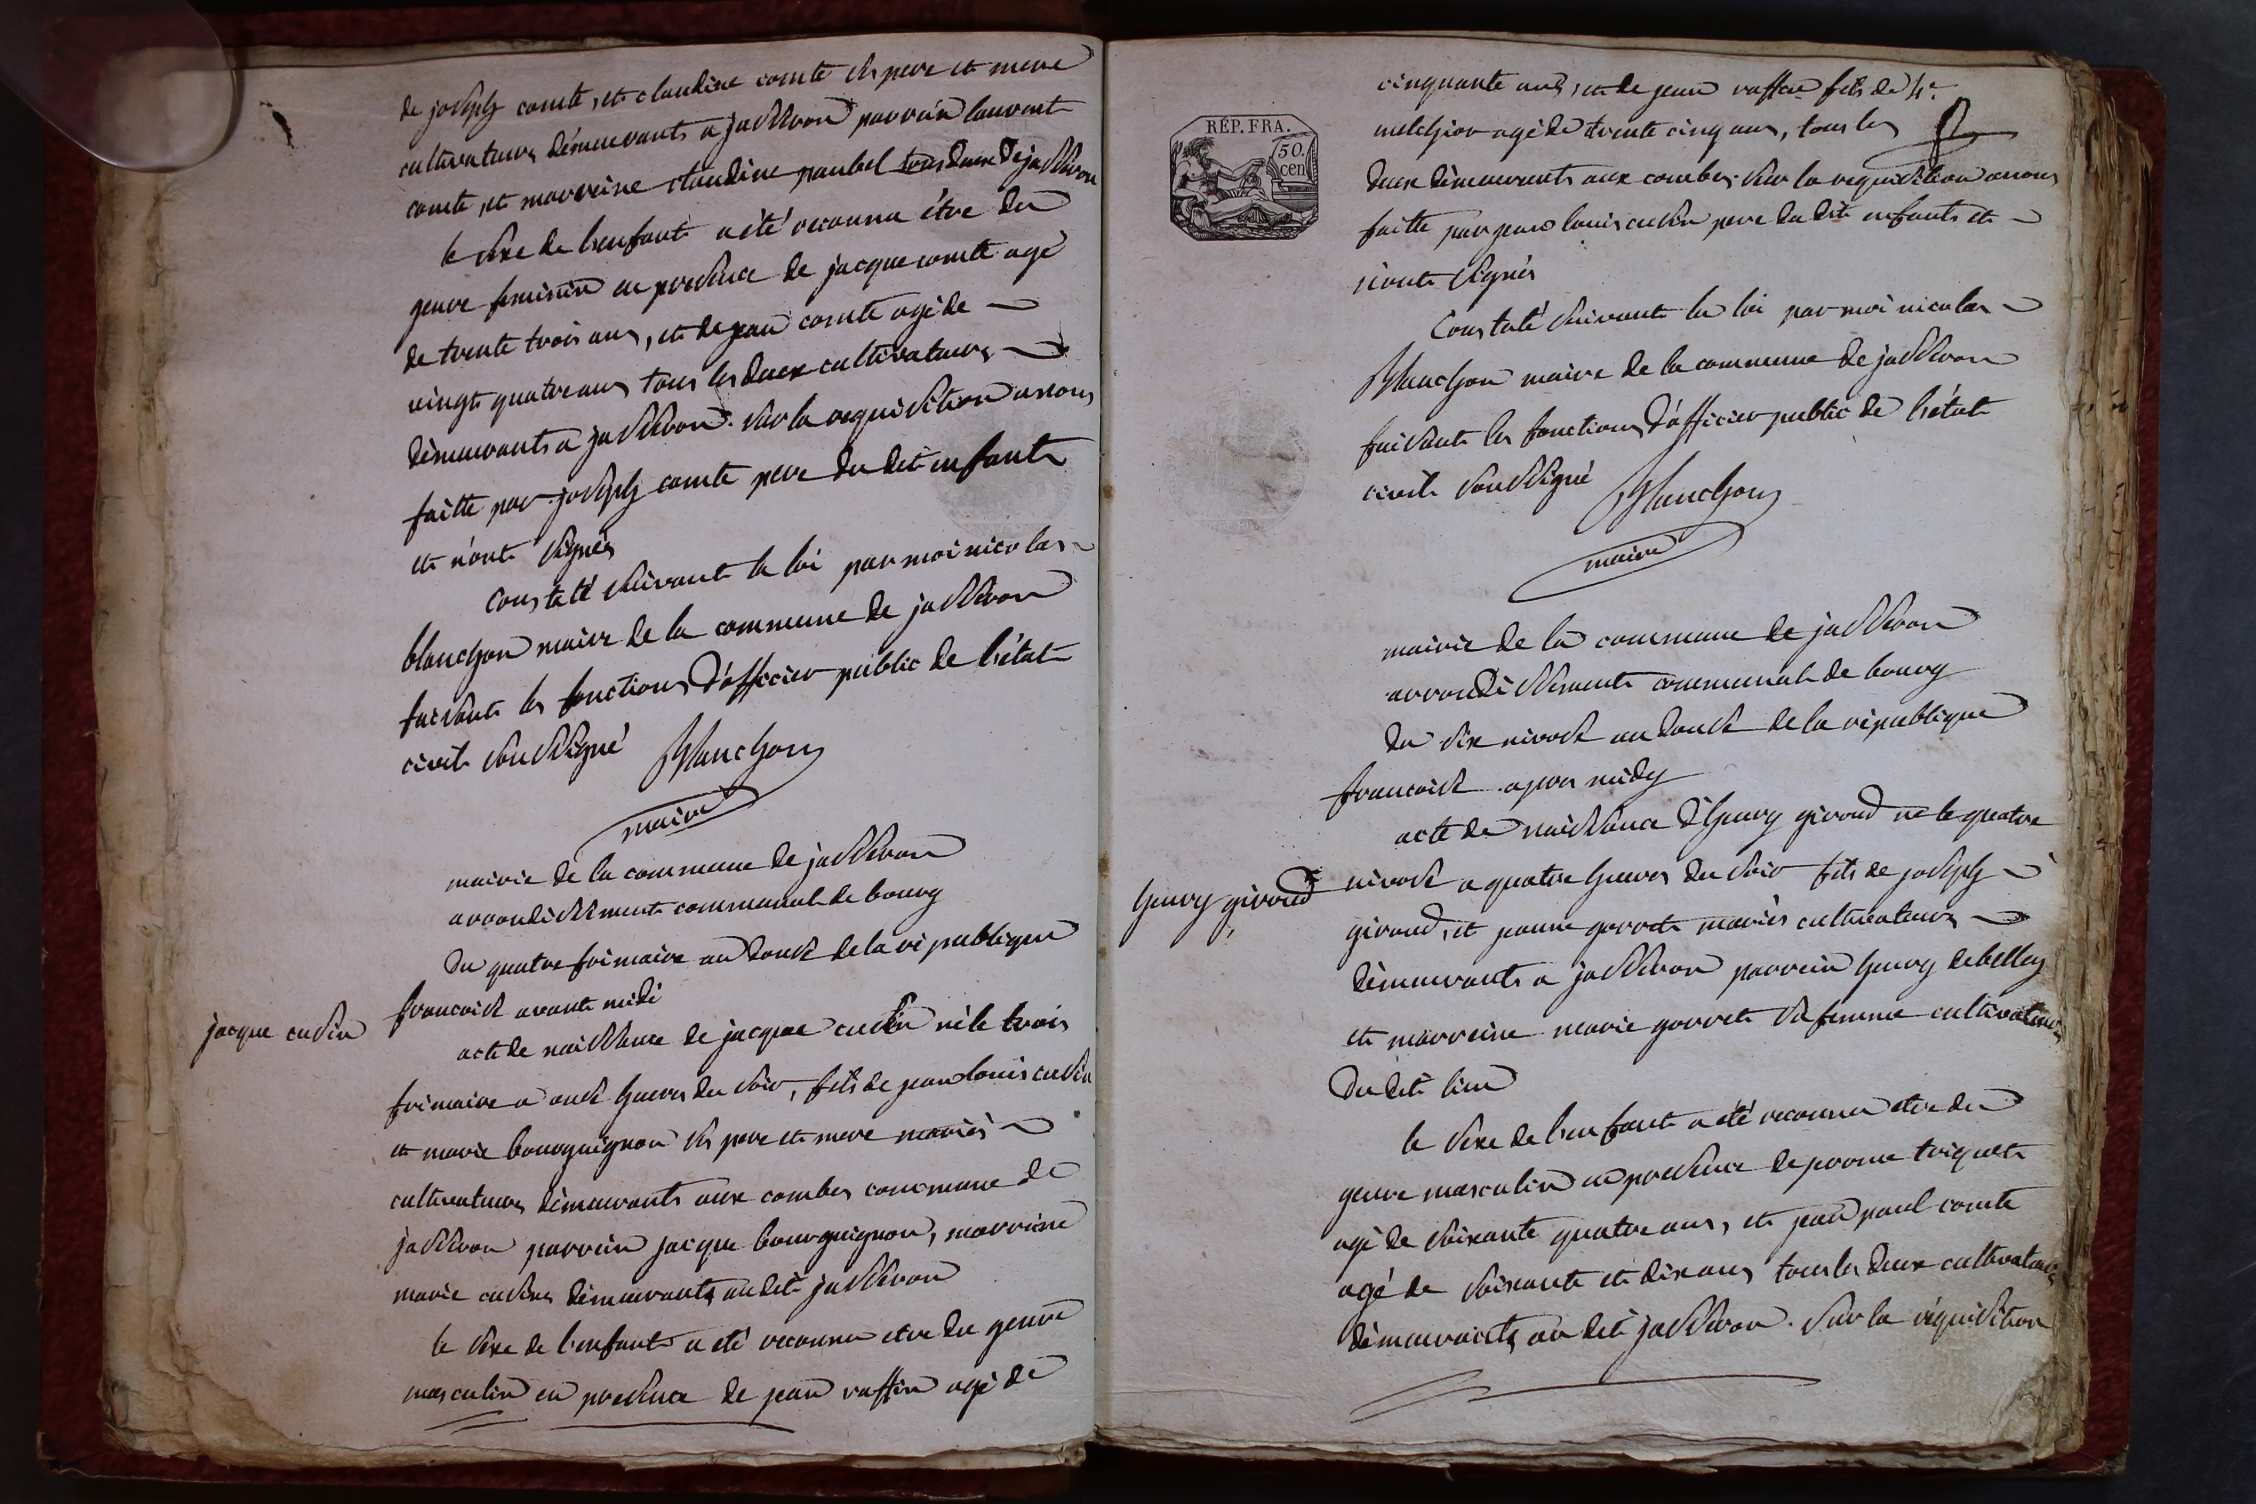 de joseph comte, et claudine comte ses pere et mere
cultivateurs démeurants a jasseron parrain laurent
comte, et marreine claudine paubel tous deux de jasseron
le sexe de l'enfant a été reconnu être du
genre feminin en presence de jacque comte agé
de trente trois ans, et de jean comte agé de
vingt quatre ans tous les deux cultivateurs
démeurants a jasseron. sur la requisition a nous
faitte par joseph comte pere du dit enfant
et n'ont signés
constaté suivant la loi par moi nicolas
blanchon maire de la commune de jasseron
faisant les fonctions d'officier public de l'état
civil soussigné Blanchon
maire
mairie de la commune de jasseron
arrondissement communal de bourg
du quatre frimaire an douse de la république
francoise avant midi
jacque cusin
acte de naissance de jacque cusin né le trois
frimaire a onse heures du soir, fils de jean louis cusin
et marie bourguignon ses pere et mere mariés
cultivateurs démeurants aux combes commune de
jasseron parrein jacque bourguignon, marreine
marie cusin démeurants au dit jasseron
le sexe de l'enfant a eté reconnu etre du genre
masculin en presence de jean raffin agé de
RÉP. FRA.
50.
cen
cinquante ans, et de jean raffin fils de
melchior agé de trente cinq ans, tous les
deux démeurants aux combes. sur la requisition a nous
faitte par jean louis cusin pere du dit enfant et
n'ont signés
Constaté suivant la loi par moi nicolas
Blanchon maire de la commune de jasseron
faisant les fonctions d'officier public de l'état
civil soussigné
Blanchon
maire
mairie de la commune de jasseron
arrondissement communal de bourg
du six nivose an douse de la république
francoise apres midy
henry giroud
acte de naissance d'henry giroud né le quatre
nivose a quatre heures du soir fils de joseph
giroud, et jeanne gorret mariés cultivateurs
démeurants a jasseron parrein henry debelley
et marreine marie gorret sa femme cultivateurs
du dit lieu
le sexe de l'enfant a été reconnu etre du
genre masculin en presence de pierre triquet
agé de soixante quatre ans, et jean paul comte
agé de soixante et dix ans tous les deux cultivateurs
démeurants au dit jasseron. sur la réquisition